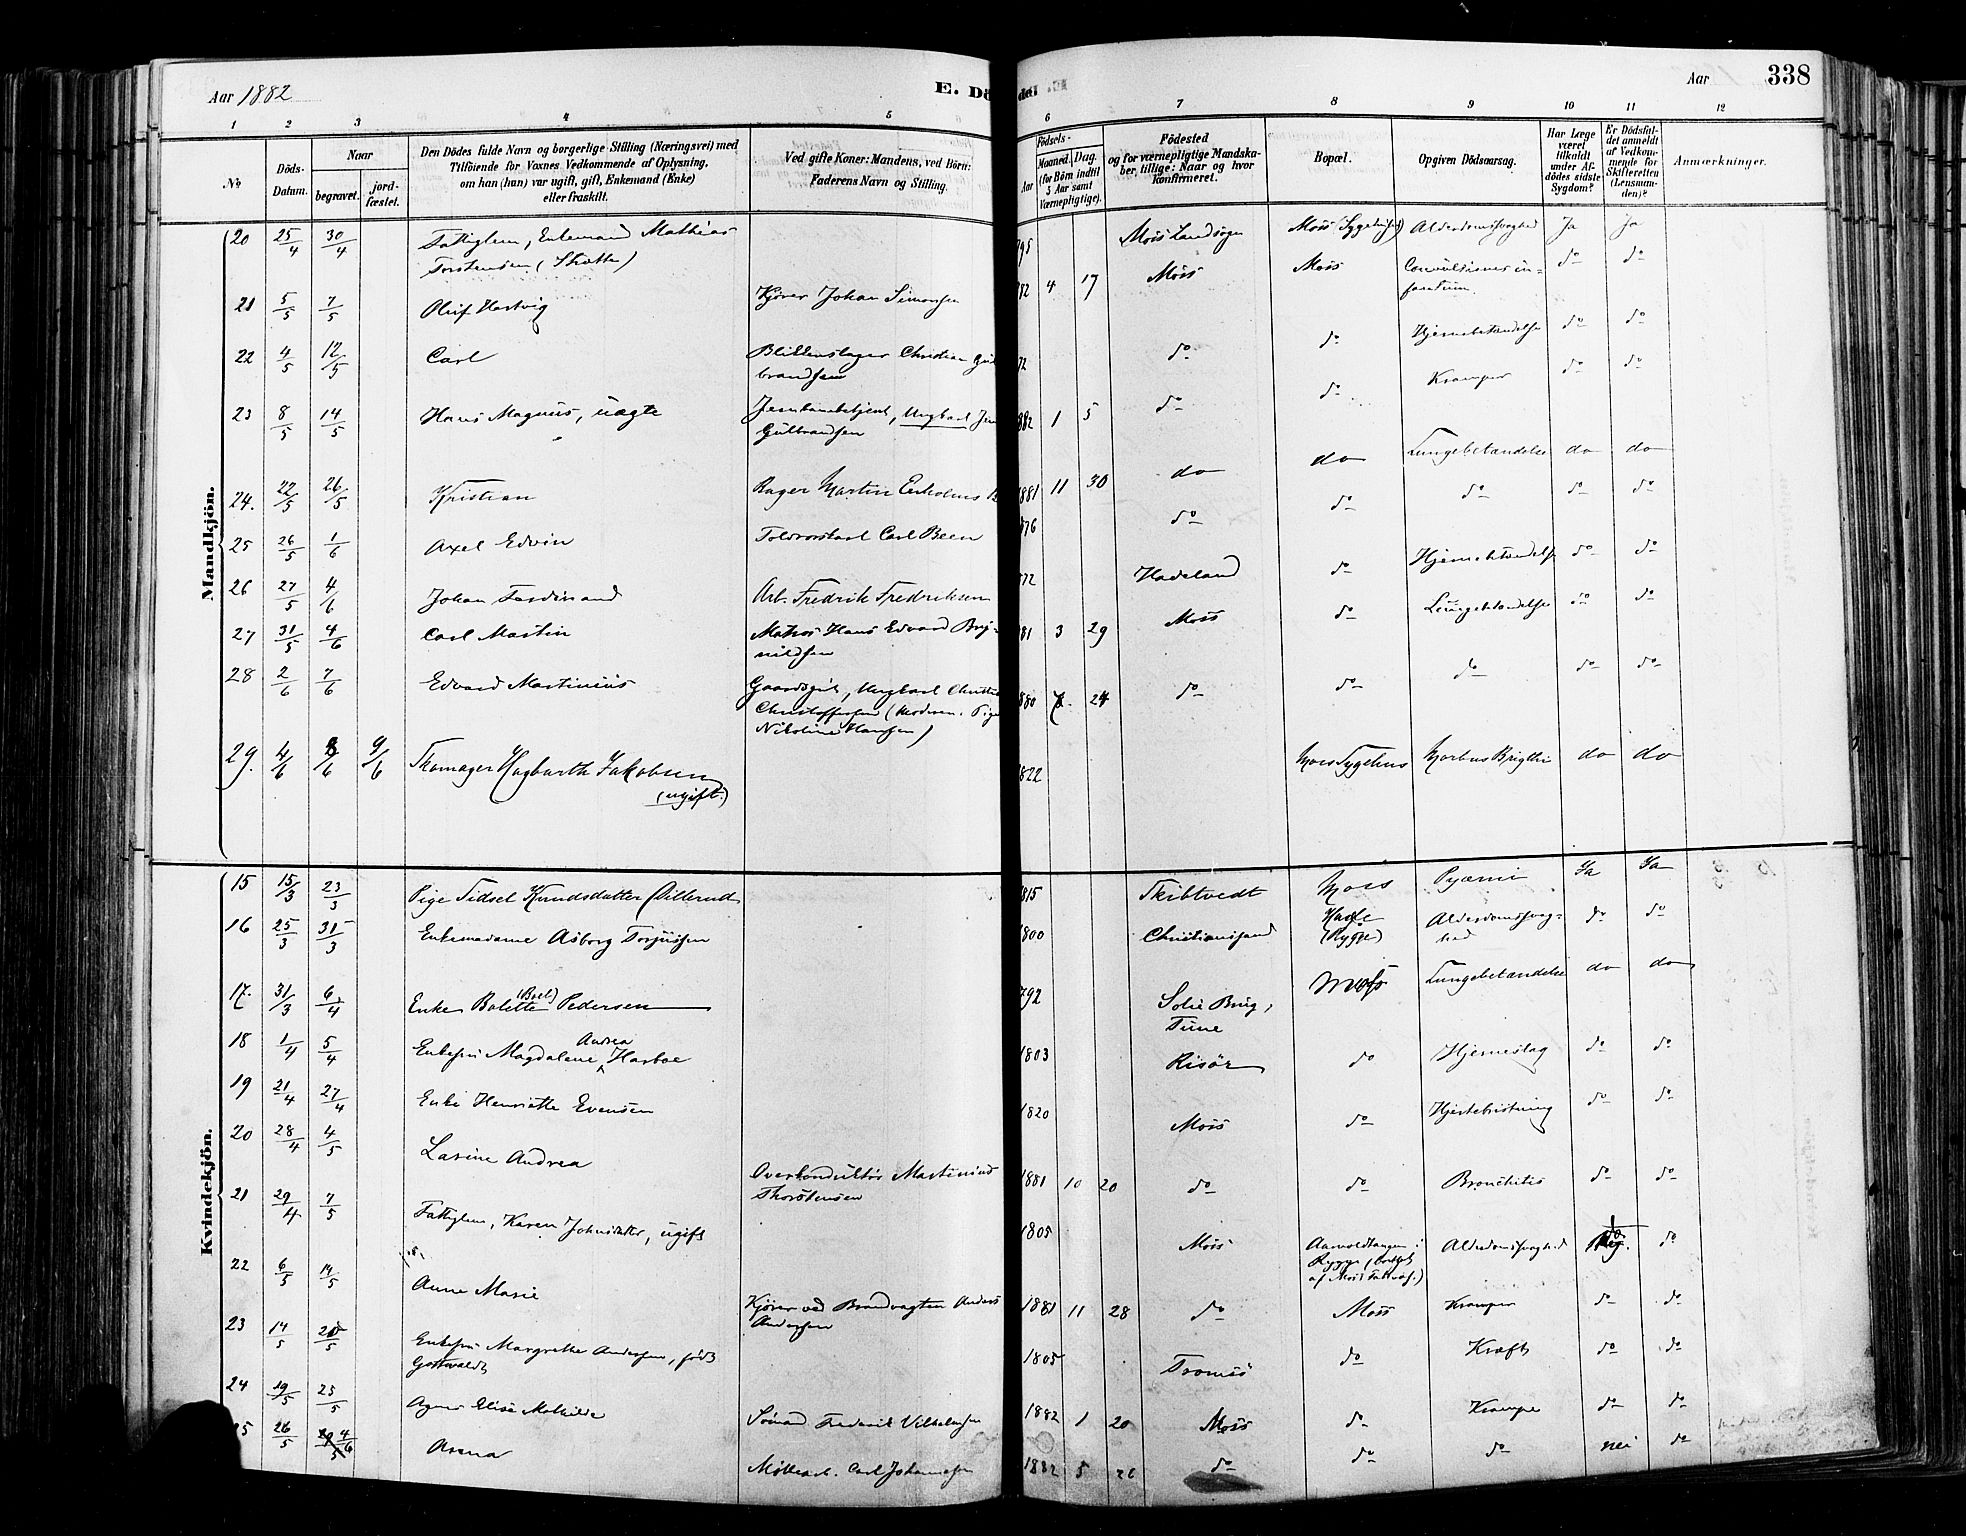 Aar 1882
E. Dö
1 2 3 4 5
No
Döds-Datum.
Naar
begravet.
jord-fæstet.
Den Dödes fulde Navn og borgerlige Stilling (Næringsvei) med
Tilföiende for Voxnes Vedkommende af Oplysning,
om han (hun) var ugift, gift, Enkemand (Enke)
eller fraskilt.
Ved gifte Koner: Mandens, ved Börn:
Faderens Navn og Stilling.
Aar 338
6 7 8 9 10 11 12
Födsels-
Aar
Maaned. Dag.
(for Börn indtil
5 Aar samt
Værnepligtige).
Födested
og for værnepligtige Mandska-
ber, tillige: Naar og hvor
konfirmeret.
Bopæl.
Opgiven Dödsaarsag.
Har Læge
været
tilkaldt
under Af-
dödes sidste
Sygdom?
Er Dödsfal-
det anmeldt
af Vedkom-
mende for
Skifteretten
(Lensman-
den)?
Anmærkninger.
Mandkjön.
20 25/4 30/4 Fattiglem, Enkemand Mathias 795 Moss Landsogn Moss (Sygehus) Alderdomssvaghed Ja Ja
Torstensen (Skotte)
21 5/5 7/5 Oluf Hartvig Kjører Johan Simonsen 82 4 17 Moss Moss Convulsiones in- do do
fantum
22 4/5 12/5 Carl Blikkenslager Christian Gul 72 do do Hjernebetændelse do do
brandsen
23 8/5 14/5 Hans Magnus, uægte Jernbanebetjent, Ungkarl 882 1 5 do do Kramper do do
Gulbrandsen
24. 22/5 26/5 Kristian Bager Martin Erholms 1881 11 30 do do Lungebetændelse do do
25 26/5 1/6 Axel Edvin Toldrorskarl Carl Been 876 do do do do do
26 27/5 4/6 Johan Ferdinand Arb. Fredrik Fredriksen 72 Hadeland do Hjernebetændelse do do
27 31/5 4/6 Carl Martin Matros Hans Edvard Bry- 81 3 29 Moss do Lungebetændelse do do
nildsen
28 2/6 7/6 Edvard Martinius Gaardsgut, Ungkarl 880 24 do do do do do
Christoffersen (Moderen: Pige
Nikoline Hansen)
29. 4/6 8/6 9/6 Skomager Hagbarth Jakobsen 1822 Moss Sygehus Morbus Brigthi do do
(ugift.)
Kvindekjön.
15 15/3 23/3 Pige Sidsel Knudsdatter (Dillerud 815 Skibtvedt Moss Pyæmi Ja Ja
16 25/3 31/3 Enkemadame Asborg Torjussen 1800 Christianssand (Rygge) Alderdomssvag- do do
hed
17. 31/3 6/4 Enke Bolette (Boel) Pedersen 792 Solie Brug, Moss Lungebetændelse do do
Tune
18 1/4 5/4 Enkefru Magdalene Andrea Harboe 1803 Risör do Hjerneslag do do
19 21/4 27/4 Enke Henriette Evensen 1820 Moss do Hjertebristning do do
20 28/4 4/5 Lasine Andrea Overkonduktør Martinius 1881 10 20 do do Bronchitis do do
Thorstensen
21 29/4 7/5 Fattiglem, Karen Johnsdatter, ugift 1805 Moss Aarvoldtangen i Alderdomssvaghed do do
Rygge (bortsat
af Moss Fattigv.)
22 6/5 14/5 Anne Marie Kjører ved Brandvagten Anders 1881 11 28 do Moss Kramper do do
Andersen
23 14/5 20/5 Enkefru Margrethe Andersen, født 1805 Tromsö do Kræft do do
Gottwaldt
24 19/5 25/5 Agnes Elise Mathilde Sömand Frederik Vilhelmsen 1882 1 20 Moss do Krampe do do
25 26/5 4/6 Arena Møllearb. Carl Johannesen 1882 5 do do do nei do